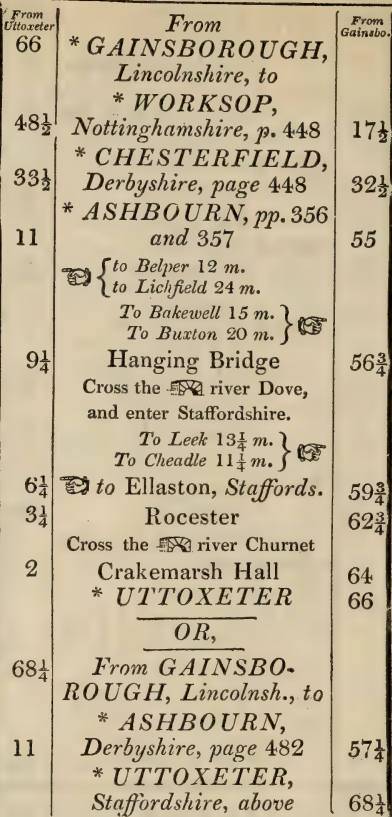 From Uttoxeter From From Gainsbo.
66 * GAINSBOROUGH,
Lincolnshire, to
* WORKSOP,
48½ Nottinghamshire, p. 448 17½
* CHESTERFIELD,
33½ Derbyshire, page 448 32½
* ASHBOURN, pp. 356
11 and 357 55
to Belper 12 m.
to Lichfield 24 m.
To Bakewell 15 m.
To Buxton 20 m.
9¼ Hanging Bridge 56¾
Cross the river Dove,
and enter Staffordshire.
To Leek 13¼ m.
To Cheadle 11¼ m.
6¼ to Ellaston, Staffords. 59¾
3¼ Rocester 62¾
Cross the river Churnet
2 Crakemarsh Hall 64
* UTTOXETER 66
OR,
68¼ From GAINSBO-
ROUGH, Lincolnsh., to
* ASHBOURN,
11 Derbyshire, page 482 57¼
* UTTOXETER,
Staffordshire, above 68¼